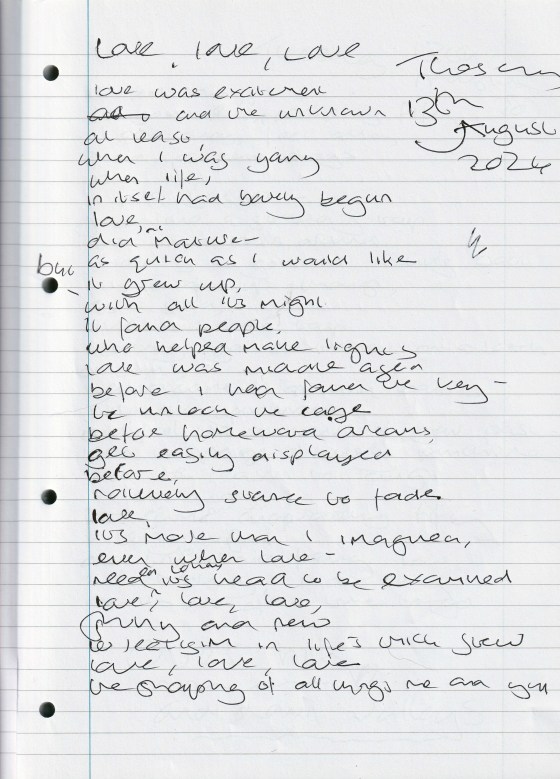 Love, love, love
Thursday
13th
August
2024
love was excitement
and the unknown
at least
when I was young
when life,
in itself had barely begun
love,
did mature –
as quick as I would like
but
it grew up,
with all its might
It found people,
who helped make lights
love was middle aged
before I had found the key –
to unlock the cage
before homeward dreams,
get easily displayed
before,
started to fade
love,
its more than I imagined,
even when love –
needed its head to be examined
love, love, love,
funny and new
in life's thick stew
love, love, love
the shaping of all things me and you